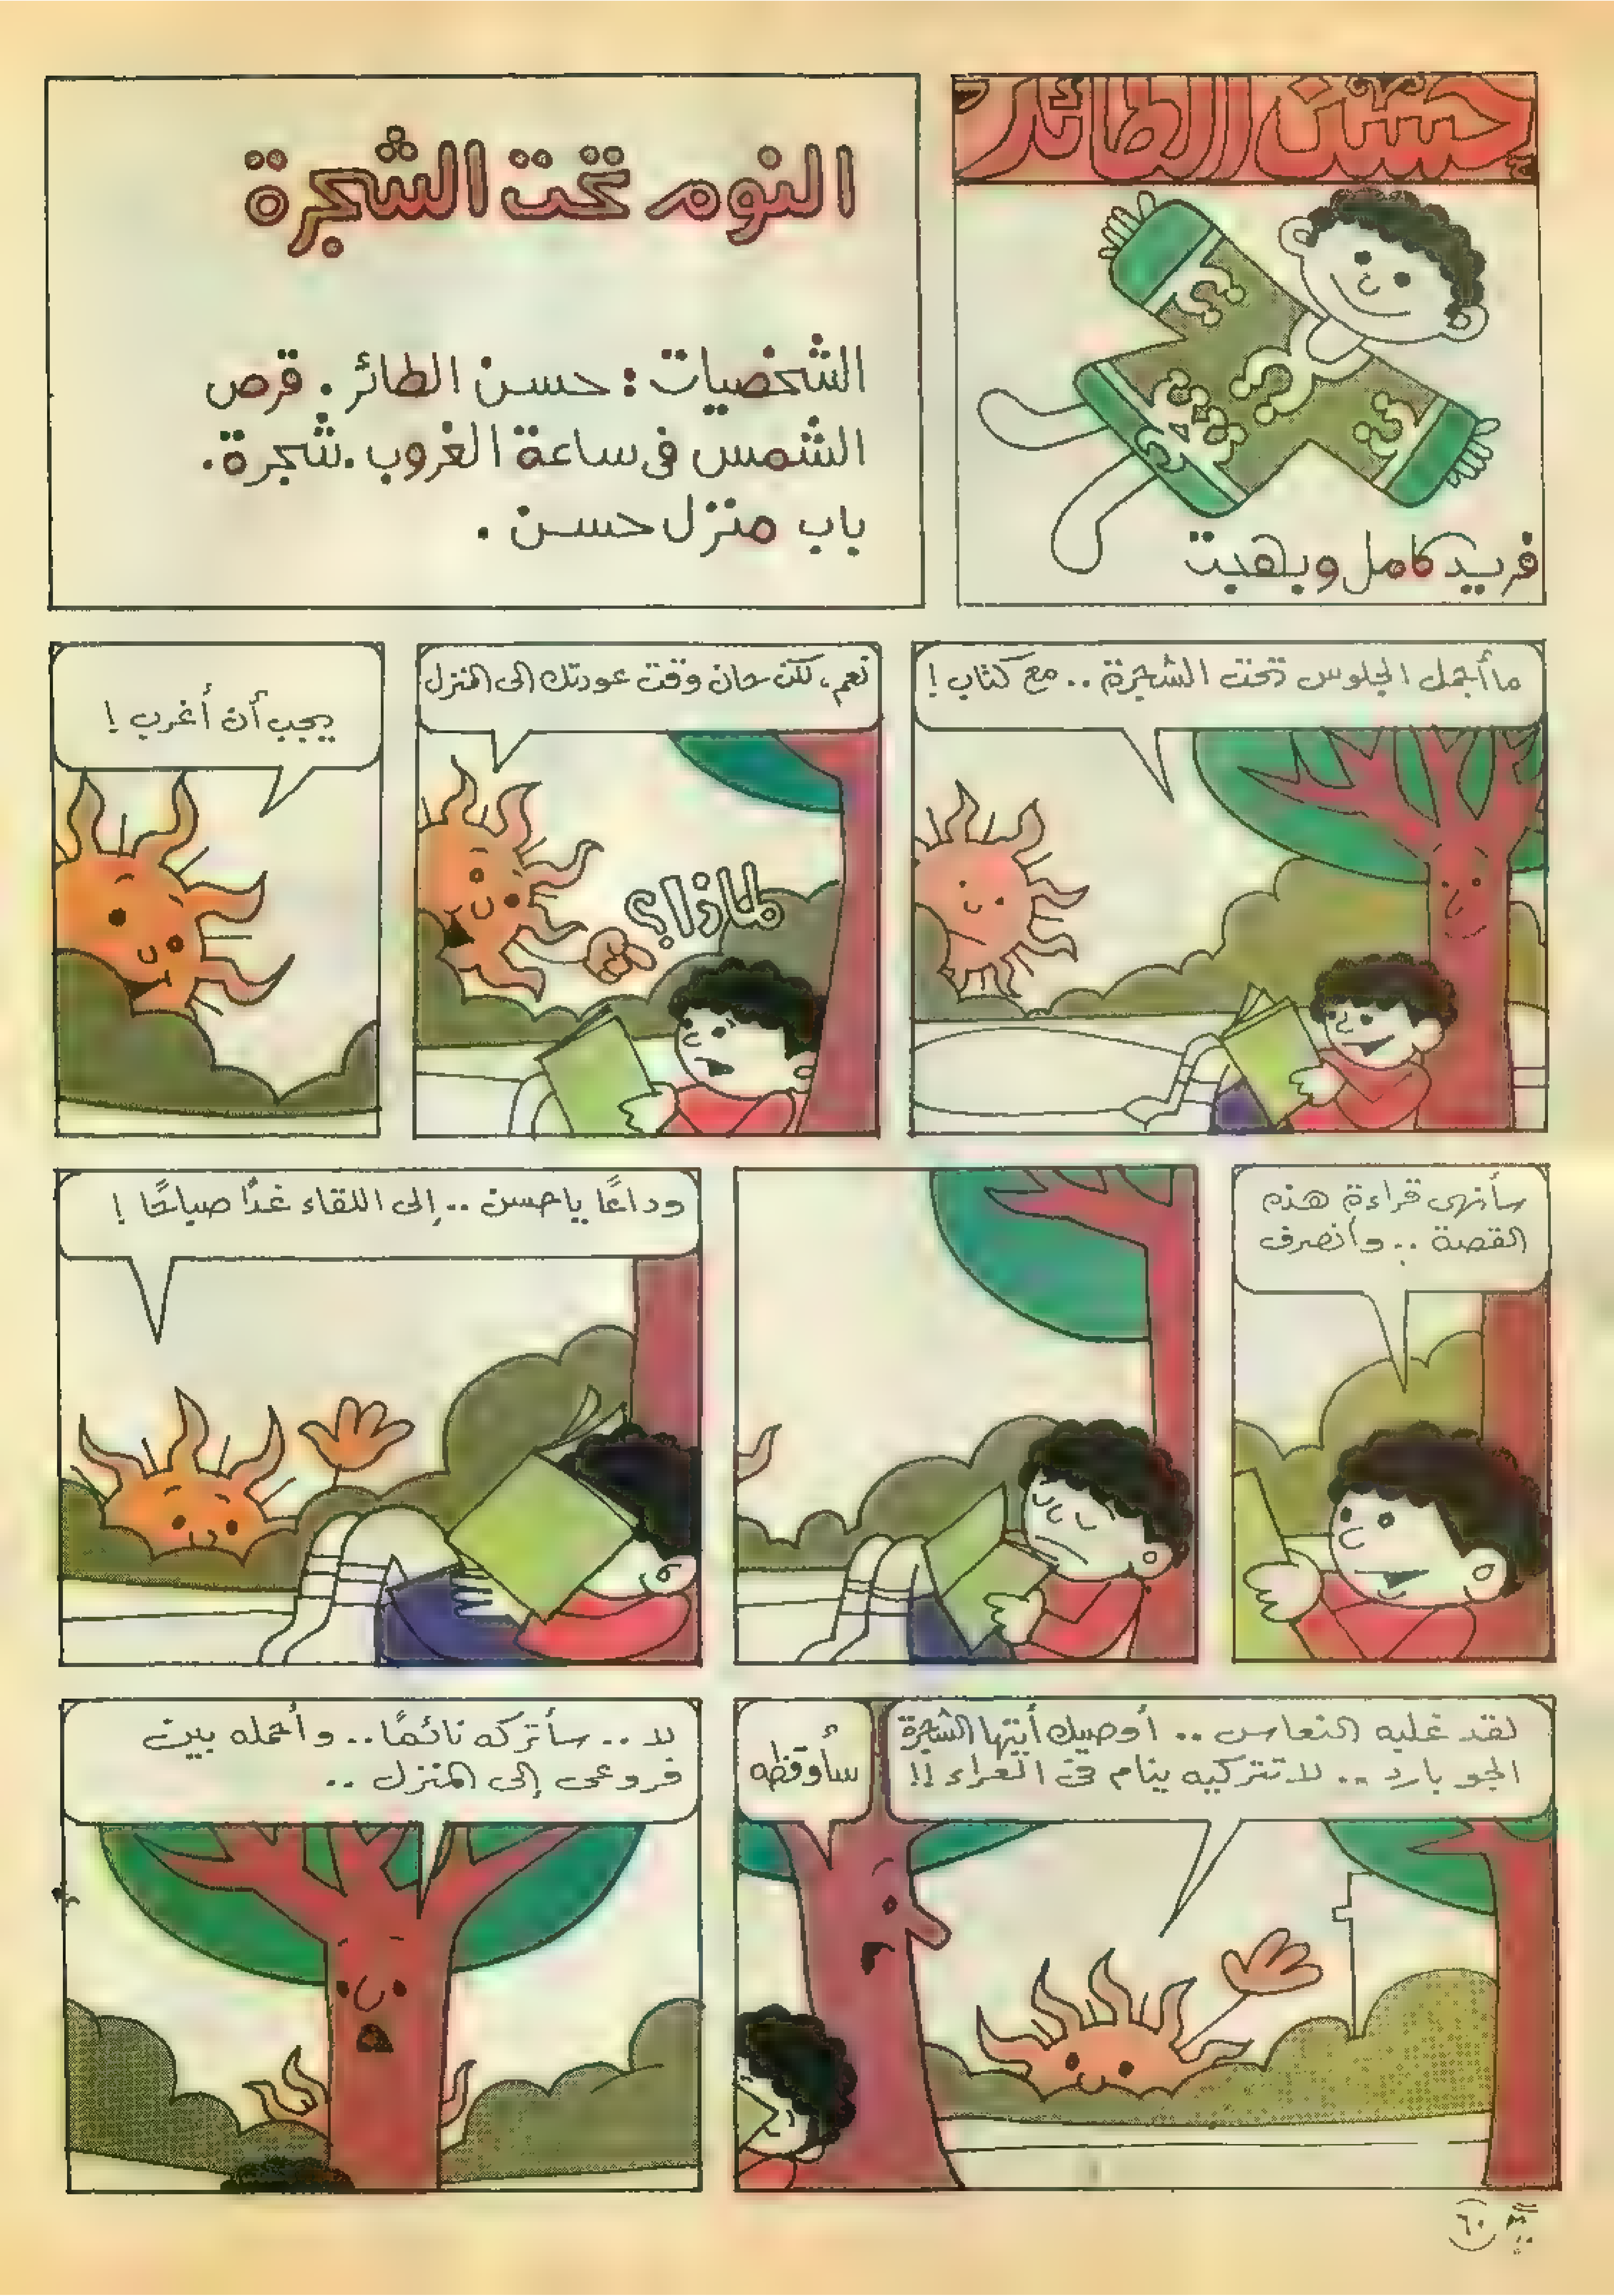 حسن الطائر
فريد كامل وبهجت
النوم تحت الشجرة
الشخصيات : حسن الطائر . قرص
الشمس فى ساعة الغروب . شجرة .
باب منزل حسن .
ما أجمل الجلوس تحت الشجرة .. مع كتاب !
نعم، لكن حان وقت عودتك إلى المنزل
لماذا؟
يجب أن أغرب !
سأنهى قراءة هذه
القصة .. وأنصرف
وداعًا ياحسن .. إلى اللقاء غدًا صباحًا !
لقد غلبه النعاس .. أوصيك أيتها الشجرة
الجو بارد .. لا تتركيه ينام فى العراء !!
سأوقظه
لا .. سأتركه نائمًا .. وأحمله بين
فروعى إلى المنزل ..
٦٠